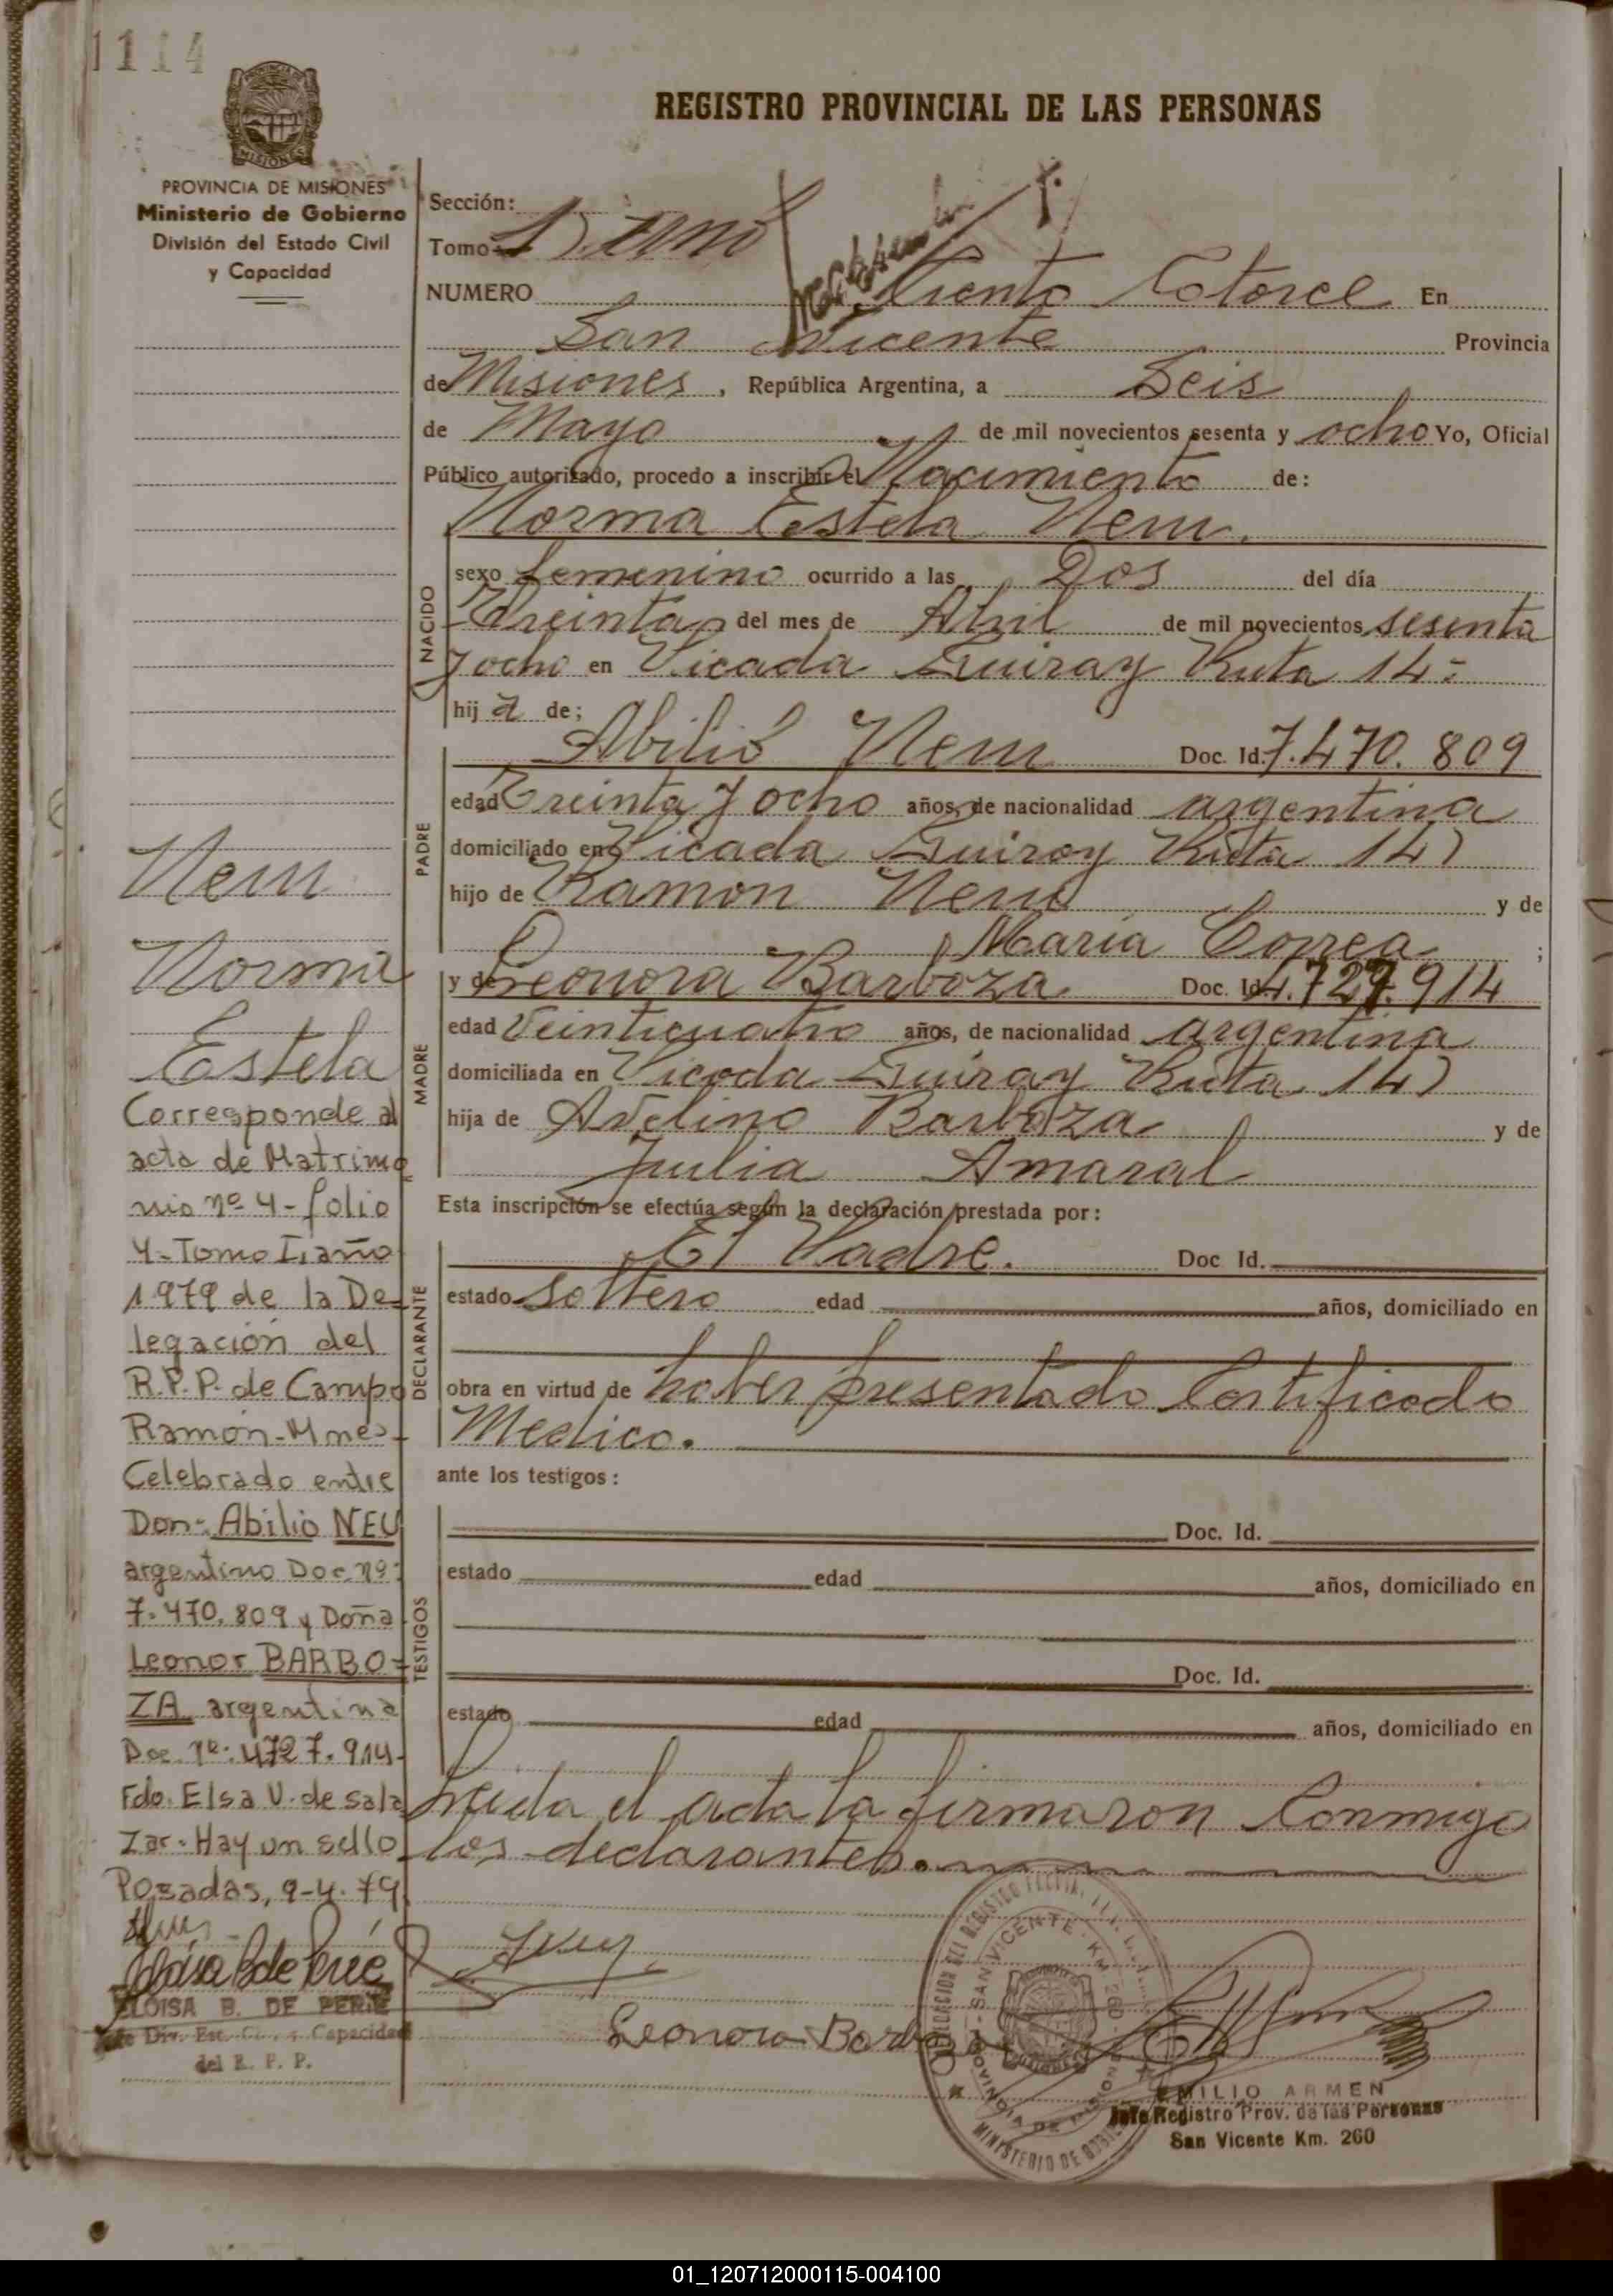 1114
PROVINCIA DE MISIONES
Ministerio de Gobierno
División del Estado Civil
y Capacidad
REGISTRO PROVINCIAL DE LAS PERSONAS
Sección:
Tomo 1) uno
NUMERO Ciento Catorce En
San Vicente Provincia
de Misiones, República Argentina, a Seis
de Mayo de mil novecientos sesenta y ocho Yo, Oficial
Público autorizado, procedo a inscribir el Nacimiento de:
Norma Estela Neu.
NACIDO
sexo femenino ocurrido a las Dos del día
Treinta del mes de Abril de mil novecientos sesenta
y ocho en Picada Guiray Ruta 14-
hija de;
PADRE
Abilio Neu Doc. Id. 7.470.809
edad Treinta y ocho años, de nacionalidad argentina
domiciliado en Picada Guiray Ruta 14)
hijo de Ramon Neu y de
Maria Correa ;
MADRE
y de Leonora Barboza Doc. Id. 4.727.914
edad Veinticuatro años, de nacionalidad argentina
domiciliada en Picada Guiray Ruta 14)
hija de Avelino Barboza y de
Julia Amaral
Esta inscripción se efectúa según la declaración prestada por:
DECLARANTE
El Padre. Doc Id.
estado soltero edad años, domiciliado en
obra en virtud de haber presentado Certificado
Medico.
ante los testigos:
TESTIGOS
Doc. Id.
estado edad años, domiciliado en
Doc. Id.
estado edad años, domiciliado en
Leida el acta la firmaron Conmigo
los declarantes.
Leonora Barbo
EMILIO ARMEN
Jefe Registro Prov. de las Personas
San Vicente Km. 260
SAN VICENTE - KM. 260
PROVINCIA DE MISIONES
Neu
Norma
Estela
Corresponde al
acta de Matrimo
nio nº 4-folio
4-Tomo I-año
1979 de la De-
legación del
R.P.P. de Campo
Ramón-Mnes-
Celebrado entre
Don-Abilio NEU
argentino Doc. nº:
7.470.809 y Doña
Leonor BARBO-
ZA argentina
Doc. nº: 4727.914-
Fdo. Elsa V. de Sala
zar-Hay un sello
Posadas, 9-4-79
ELOISA B. DE PERIE
Jefe Div. Est. Civ. y Capacidad
del R. P. P.
01_120712000115-004100